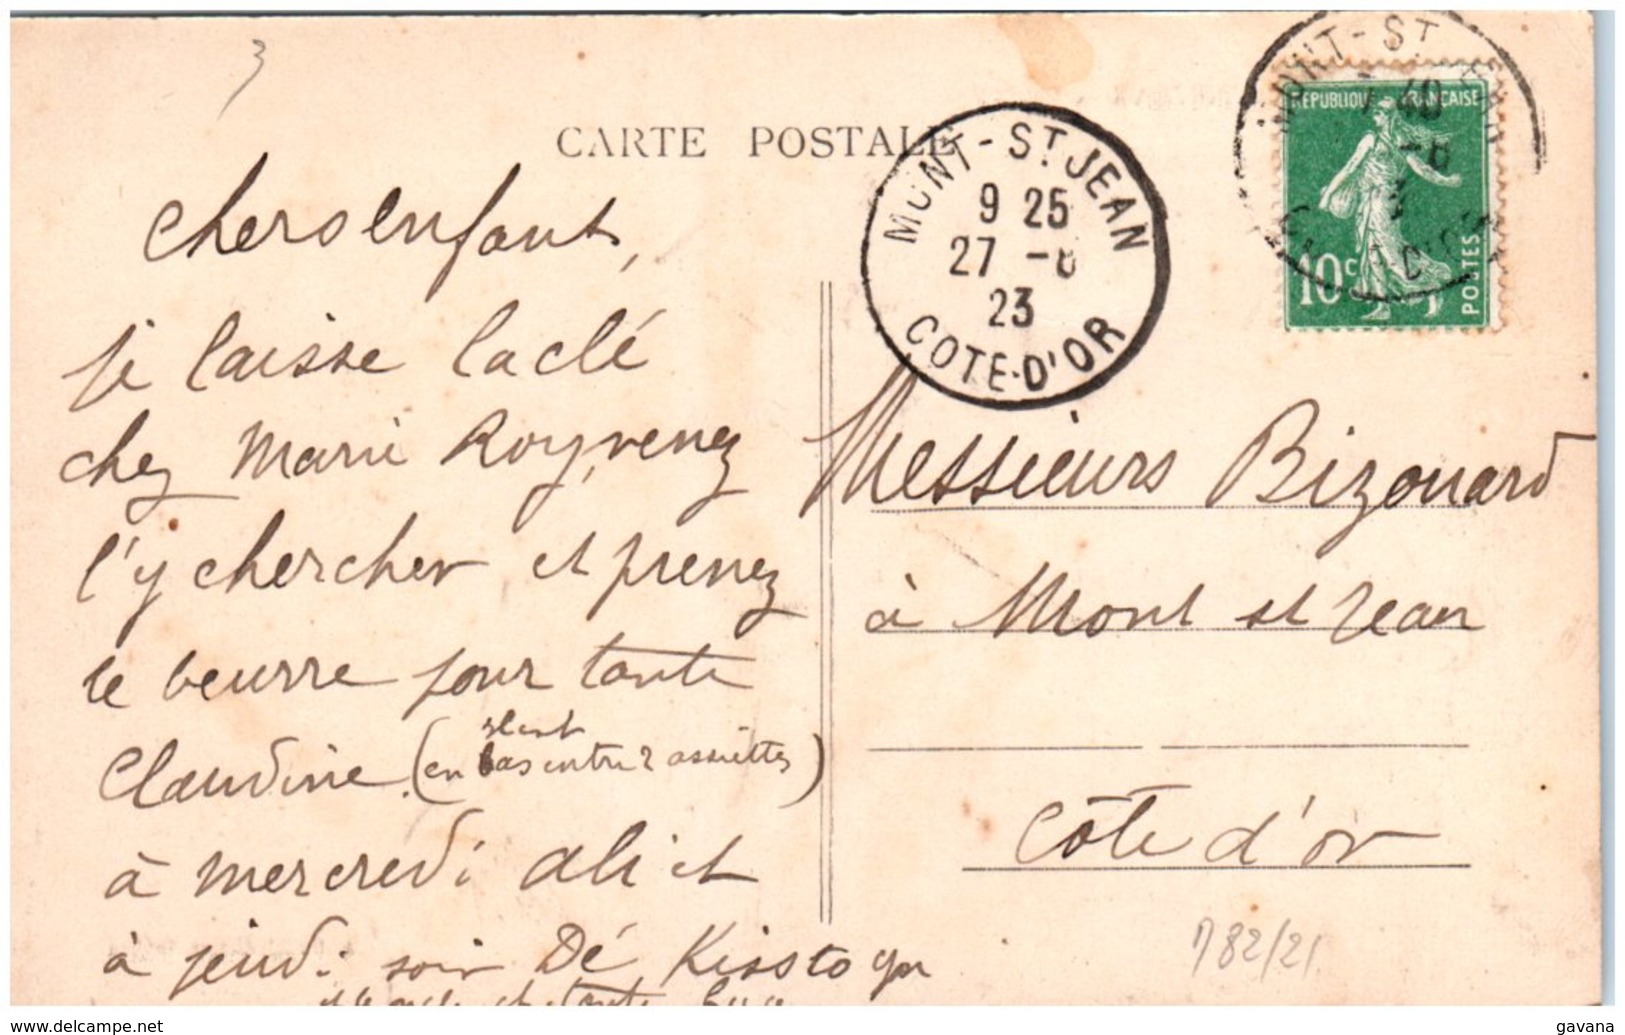 3
CARTE POSTALE
MONT-ST JEAN
9 25
27 -6
23
COTE-D'OR
RÉPUBLIQUE FRANÇAISE
10c
POSTES
Chers enfants,
je laisse la clé
chez Marie Roy, venez
l'y chercher et prenez
le beurre pour tante
Claudine. (en bas entre 2 assiettes)
à mercredi
à jeudi soir
Messieurs Bizouard
à Mont st Jean
Côte d'or
782/21
www.delcampe.net
gavana